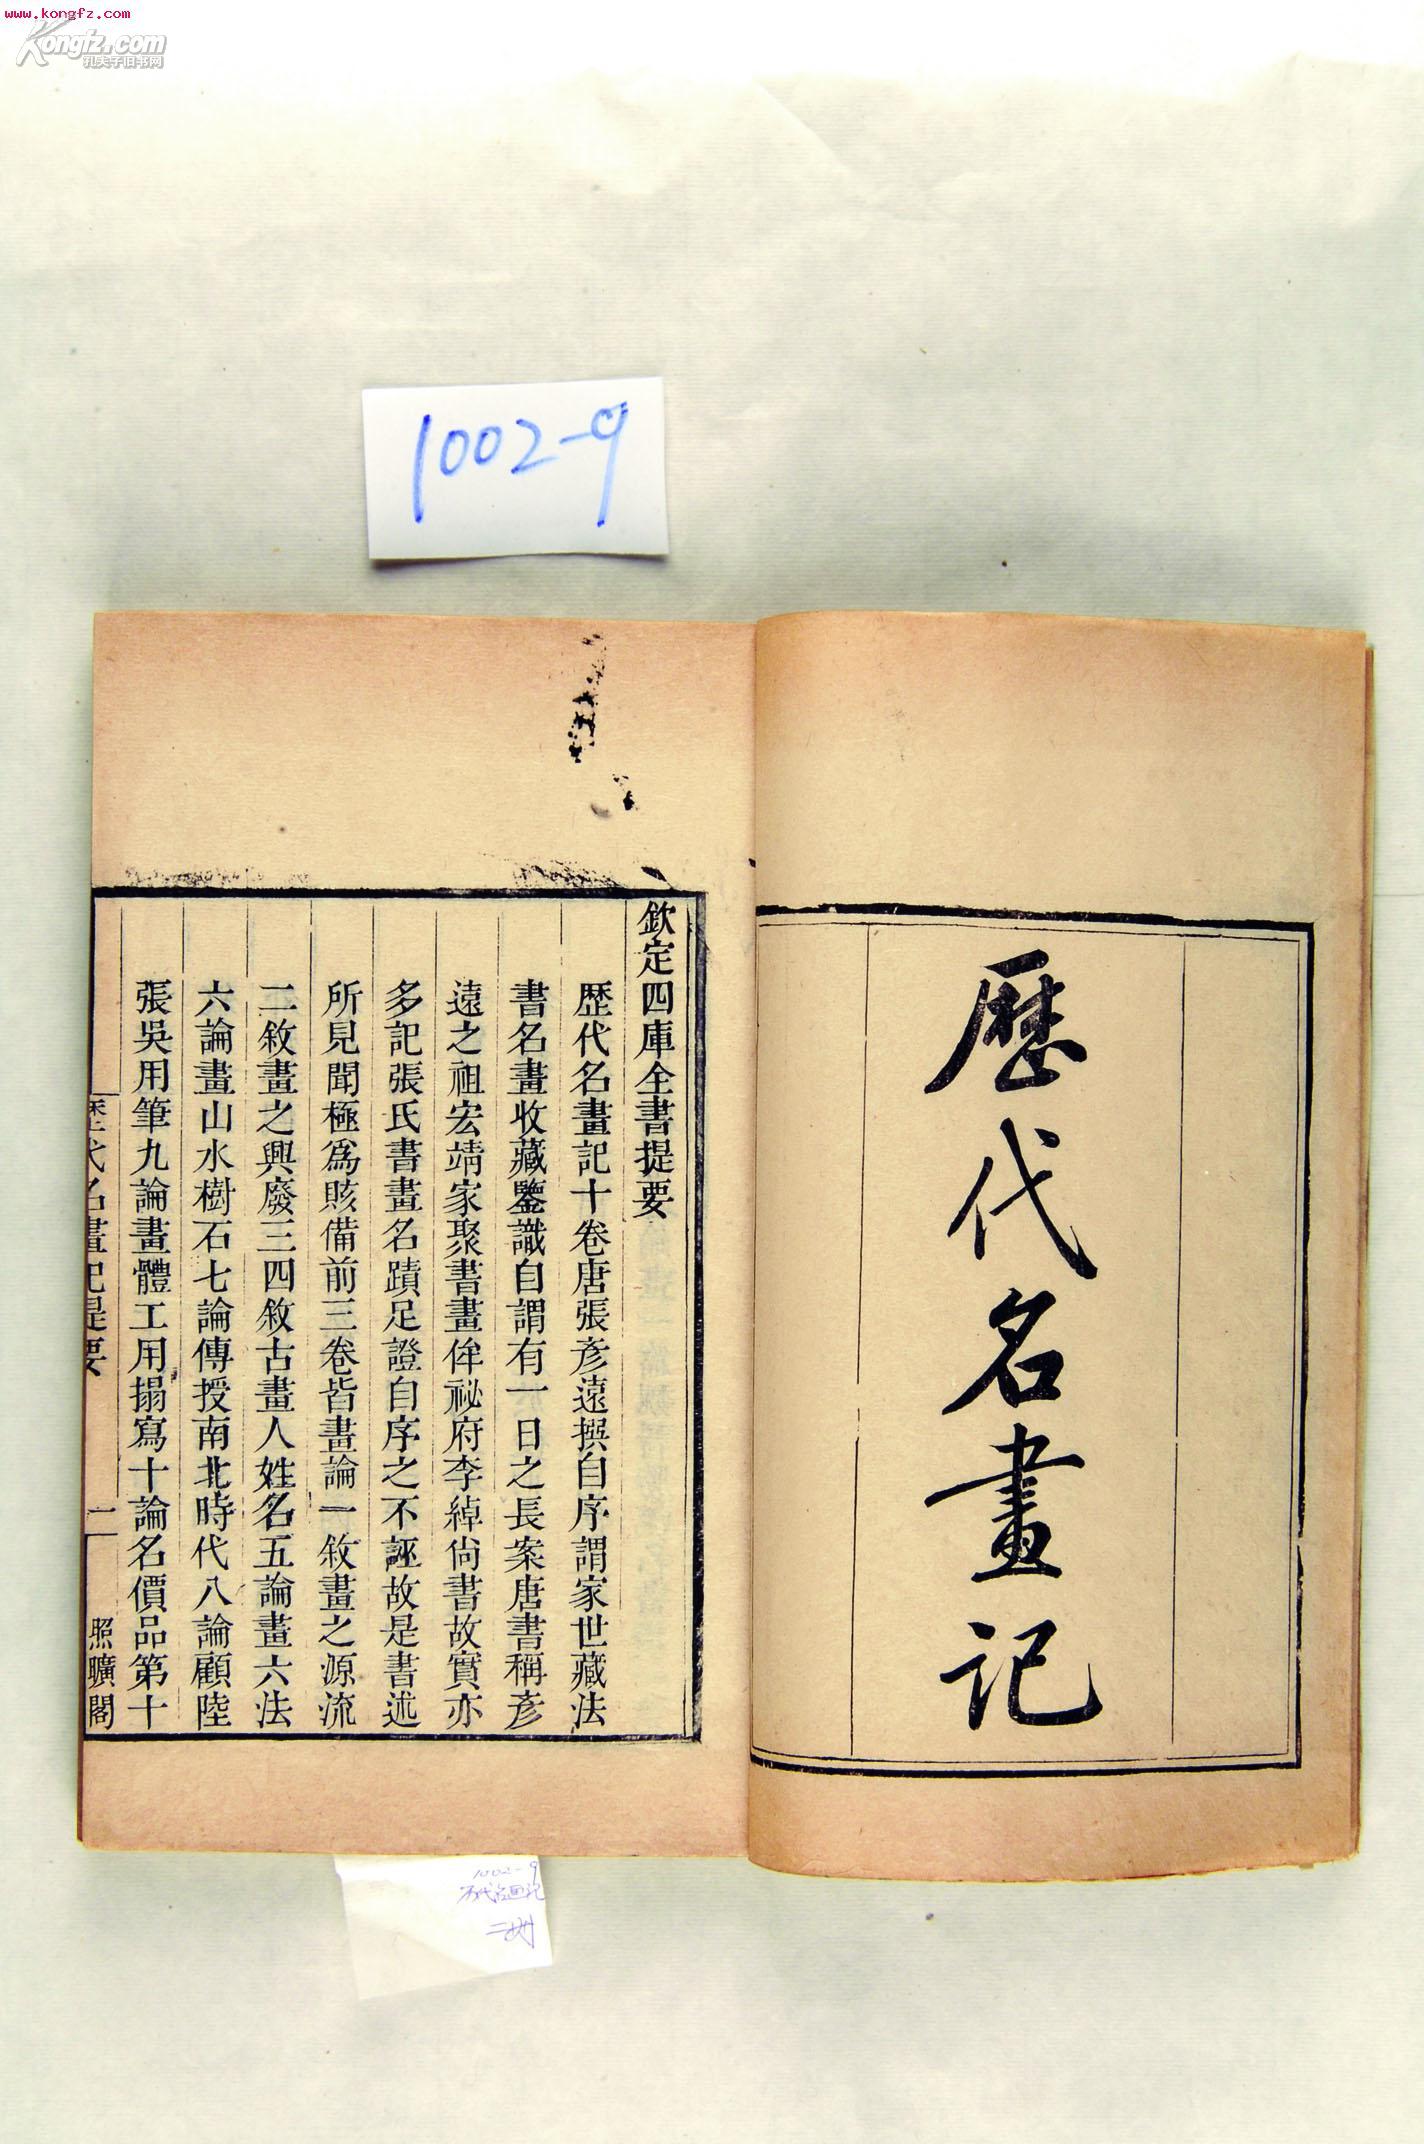 www.kongfz.com
Kongfz.com
孔夫子旧书网
1002-9
歷代名畫記
欽定四庫全書提要
歷代名畫記十卷唐張彥遠撰自序謂家世藏法
書名畫收藏鑒識自謂有一日之長案唐書稱彥
遠之祖宏靖家聚書畫侔祕府李綽尙書故實亦
多記張氏書畫名蹟足證自序之不誣故是書述
所見聞極爲賅備前三卷皆畫論一敘畫之源流
二敘畫之興廢三四敘古畫人姓名五論畫六法
六論畫山水樹石七論傳授南北時代八論顧陸
張吳用筆九論畫體工用搨寫十論名價品第十
歷代名畫記提要
一
照曠閣
1002-9
历代名画记